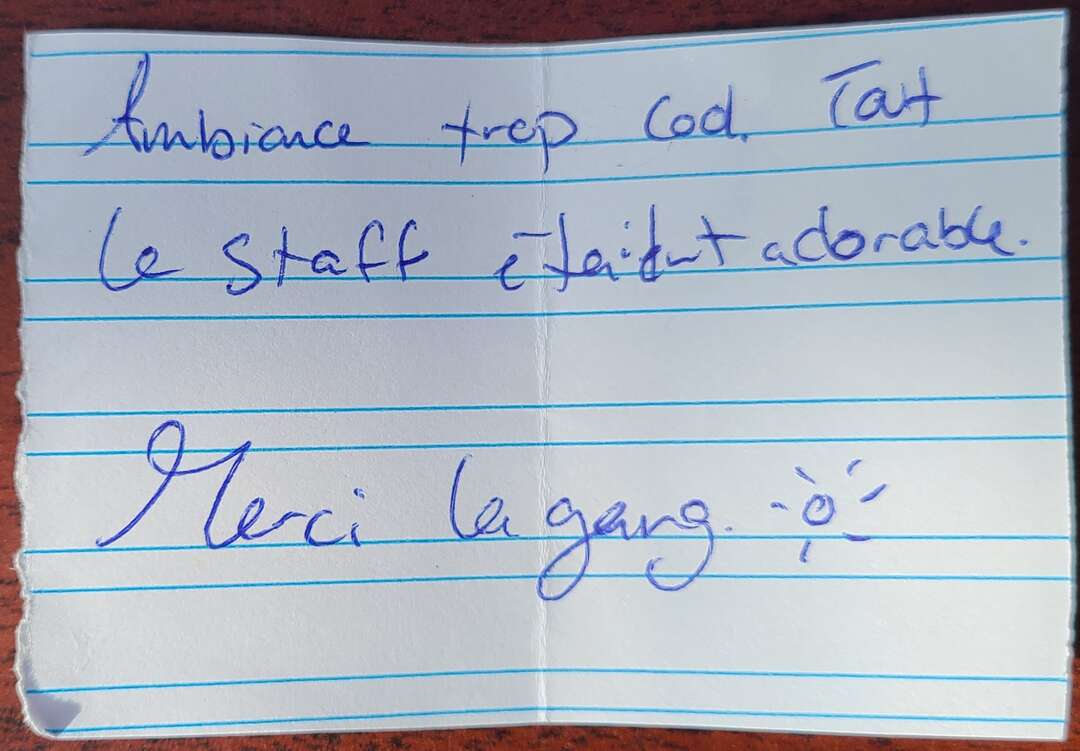 Ambiance trop cool. Tout
le staff étaient adorable.
Merci la gang.